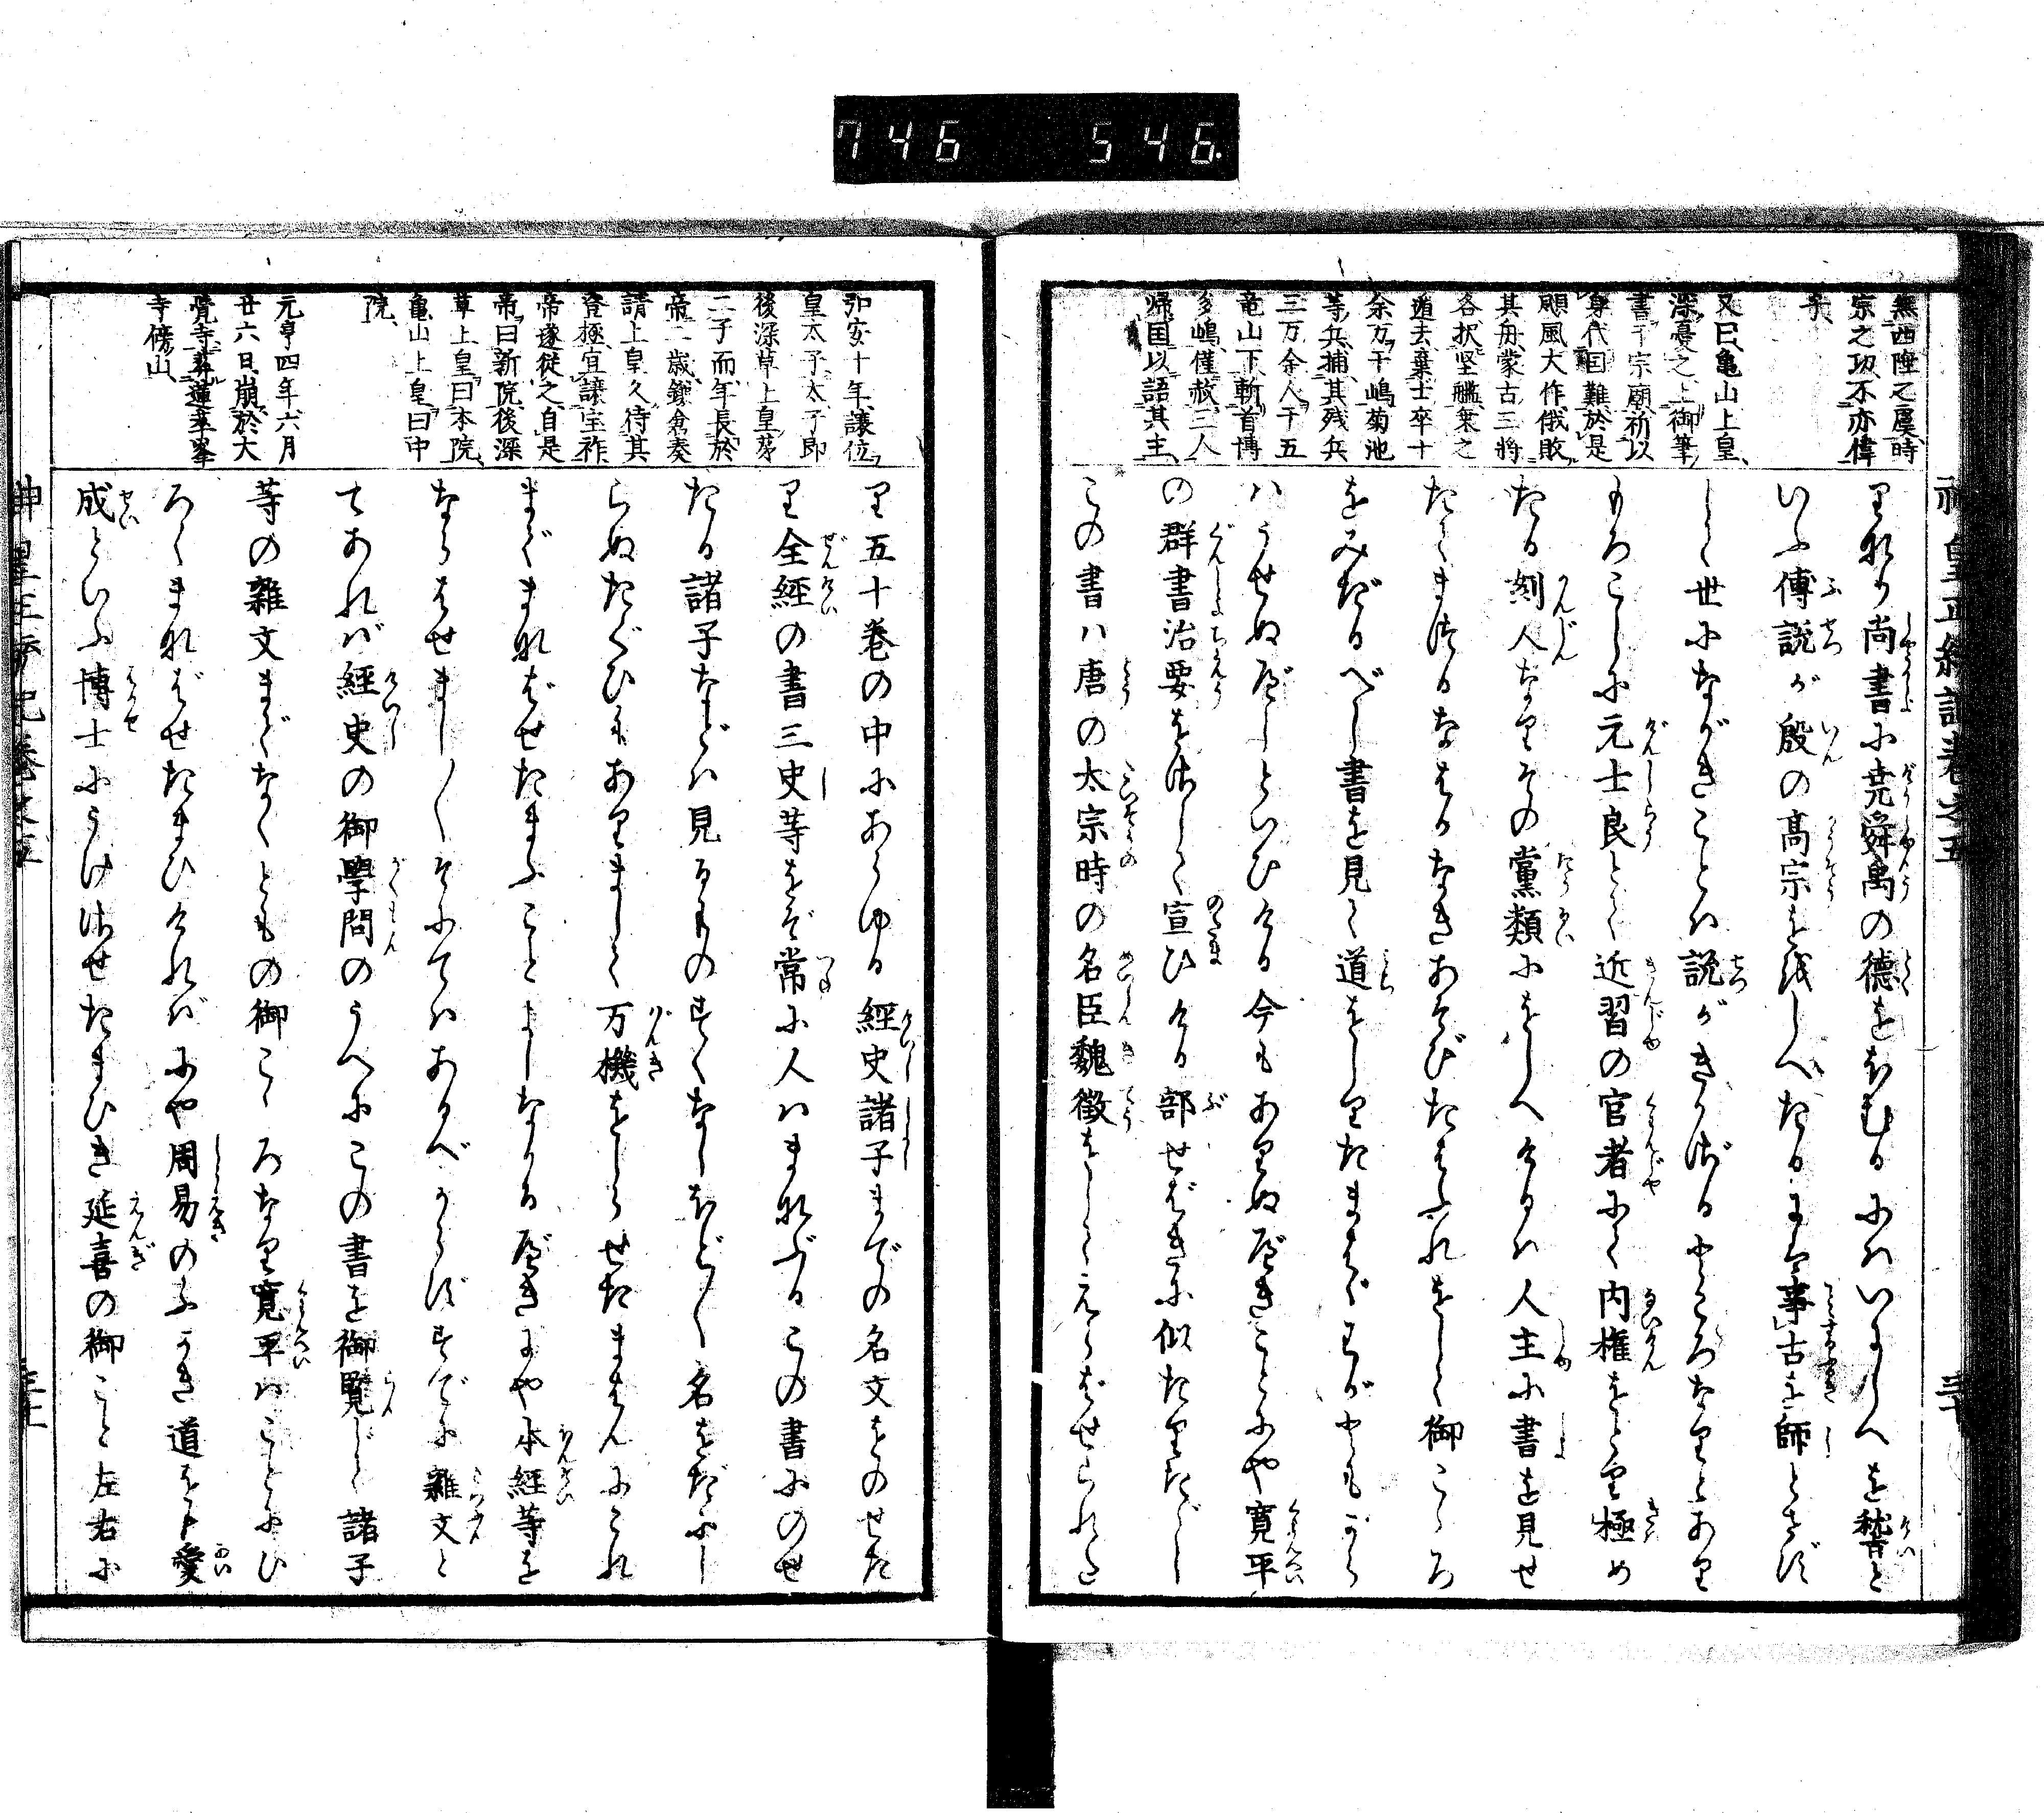 746 546.
神皇正統記巻之五
無西陲之虞時
宗之功不亦偉
乎
又曰亀山上皇
深憂之上御筆
書于宗廟祈以
身代国難於是
颶風大作俄敗
其舟蒙古三将
各択堅艦乗之
遁去棄士卒十
余万于嶋菊池
等兵捕其残兵
三万余人于五
竜山下斬首博
多嶋僅赦三人
帰国以語其主
り神か尚書に堯舜禹の徳をほむるにハいにしへを稽と
いふ傅説が殷の高宗を教しへたるにハ事古を師とせず
して世にながきことハ説がきかざるところなりとあり
もろこしに元士良とて近習の宦者にて内権をとり極め
たる刻人なりその党類にをしへけるハ人主に書を見せ
たてまつるなはるなきあそびたはふれをして御こゝろ
をみだるべし書を見て道をしりたまはゞわがともから
ハうせぬべしといひける今もありぬべきことにや寛平
の群書治要をさして宣ひける部せばきに似たりただし
この書ハ唐の太宗時の名臣魏徴をしてえらばせられた
り五十巻の中にあらゆる経史諸子までの名文をのせた
り全経の書三史等をぞ常に人ハまなぶるこの書にのせ
たる諸子などハ見るものすくなしほど〳〵名をだにし
らぬたぐひもありまして万機をしらせたまはんにこれ
までまなばせたまふことよしなかるべきにや本経等を
ならはせまし〳〵そにてハあるべからずすでに雑文と
てあれば経史の御学問のうへにこの書を御覧じて諸子
等の雑文までなくともの御こゝろなり寛平ハことにひ
ろくまなばせたまひければにや周易のふかき道をも愛
成といふ博士にうけさせたまひき延喜の御こと左右に
弘安十年譲位
皇太子太子即
後深草上皇第
二子而年長於
帝二歳鎌倉奏
請上皇久待其
登極宜譲宝祚
帝遂従之自是
帝曰新院後深
草上皇曰本院
亀山上皇曰中
院
元亨四年六月
廿六日崩於大
覚寺葬蓮華峯
寺傍山
神皇正統記巻之五